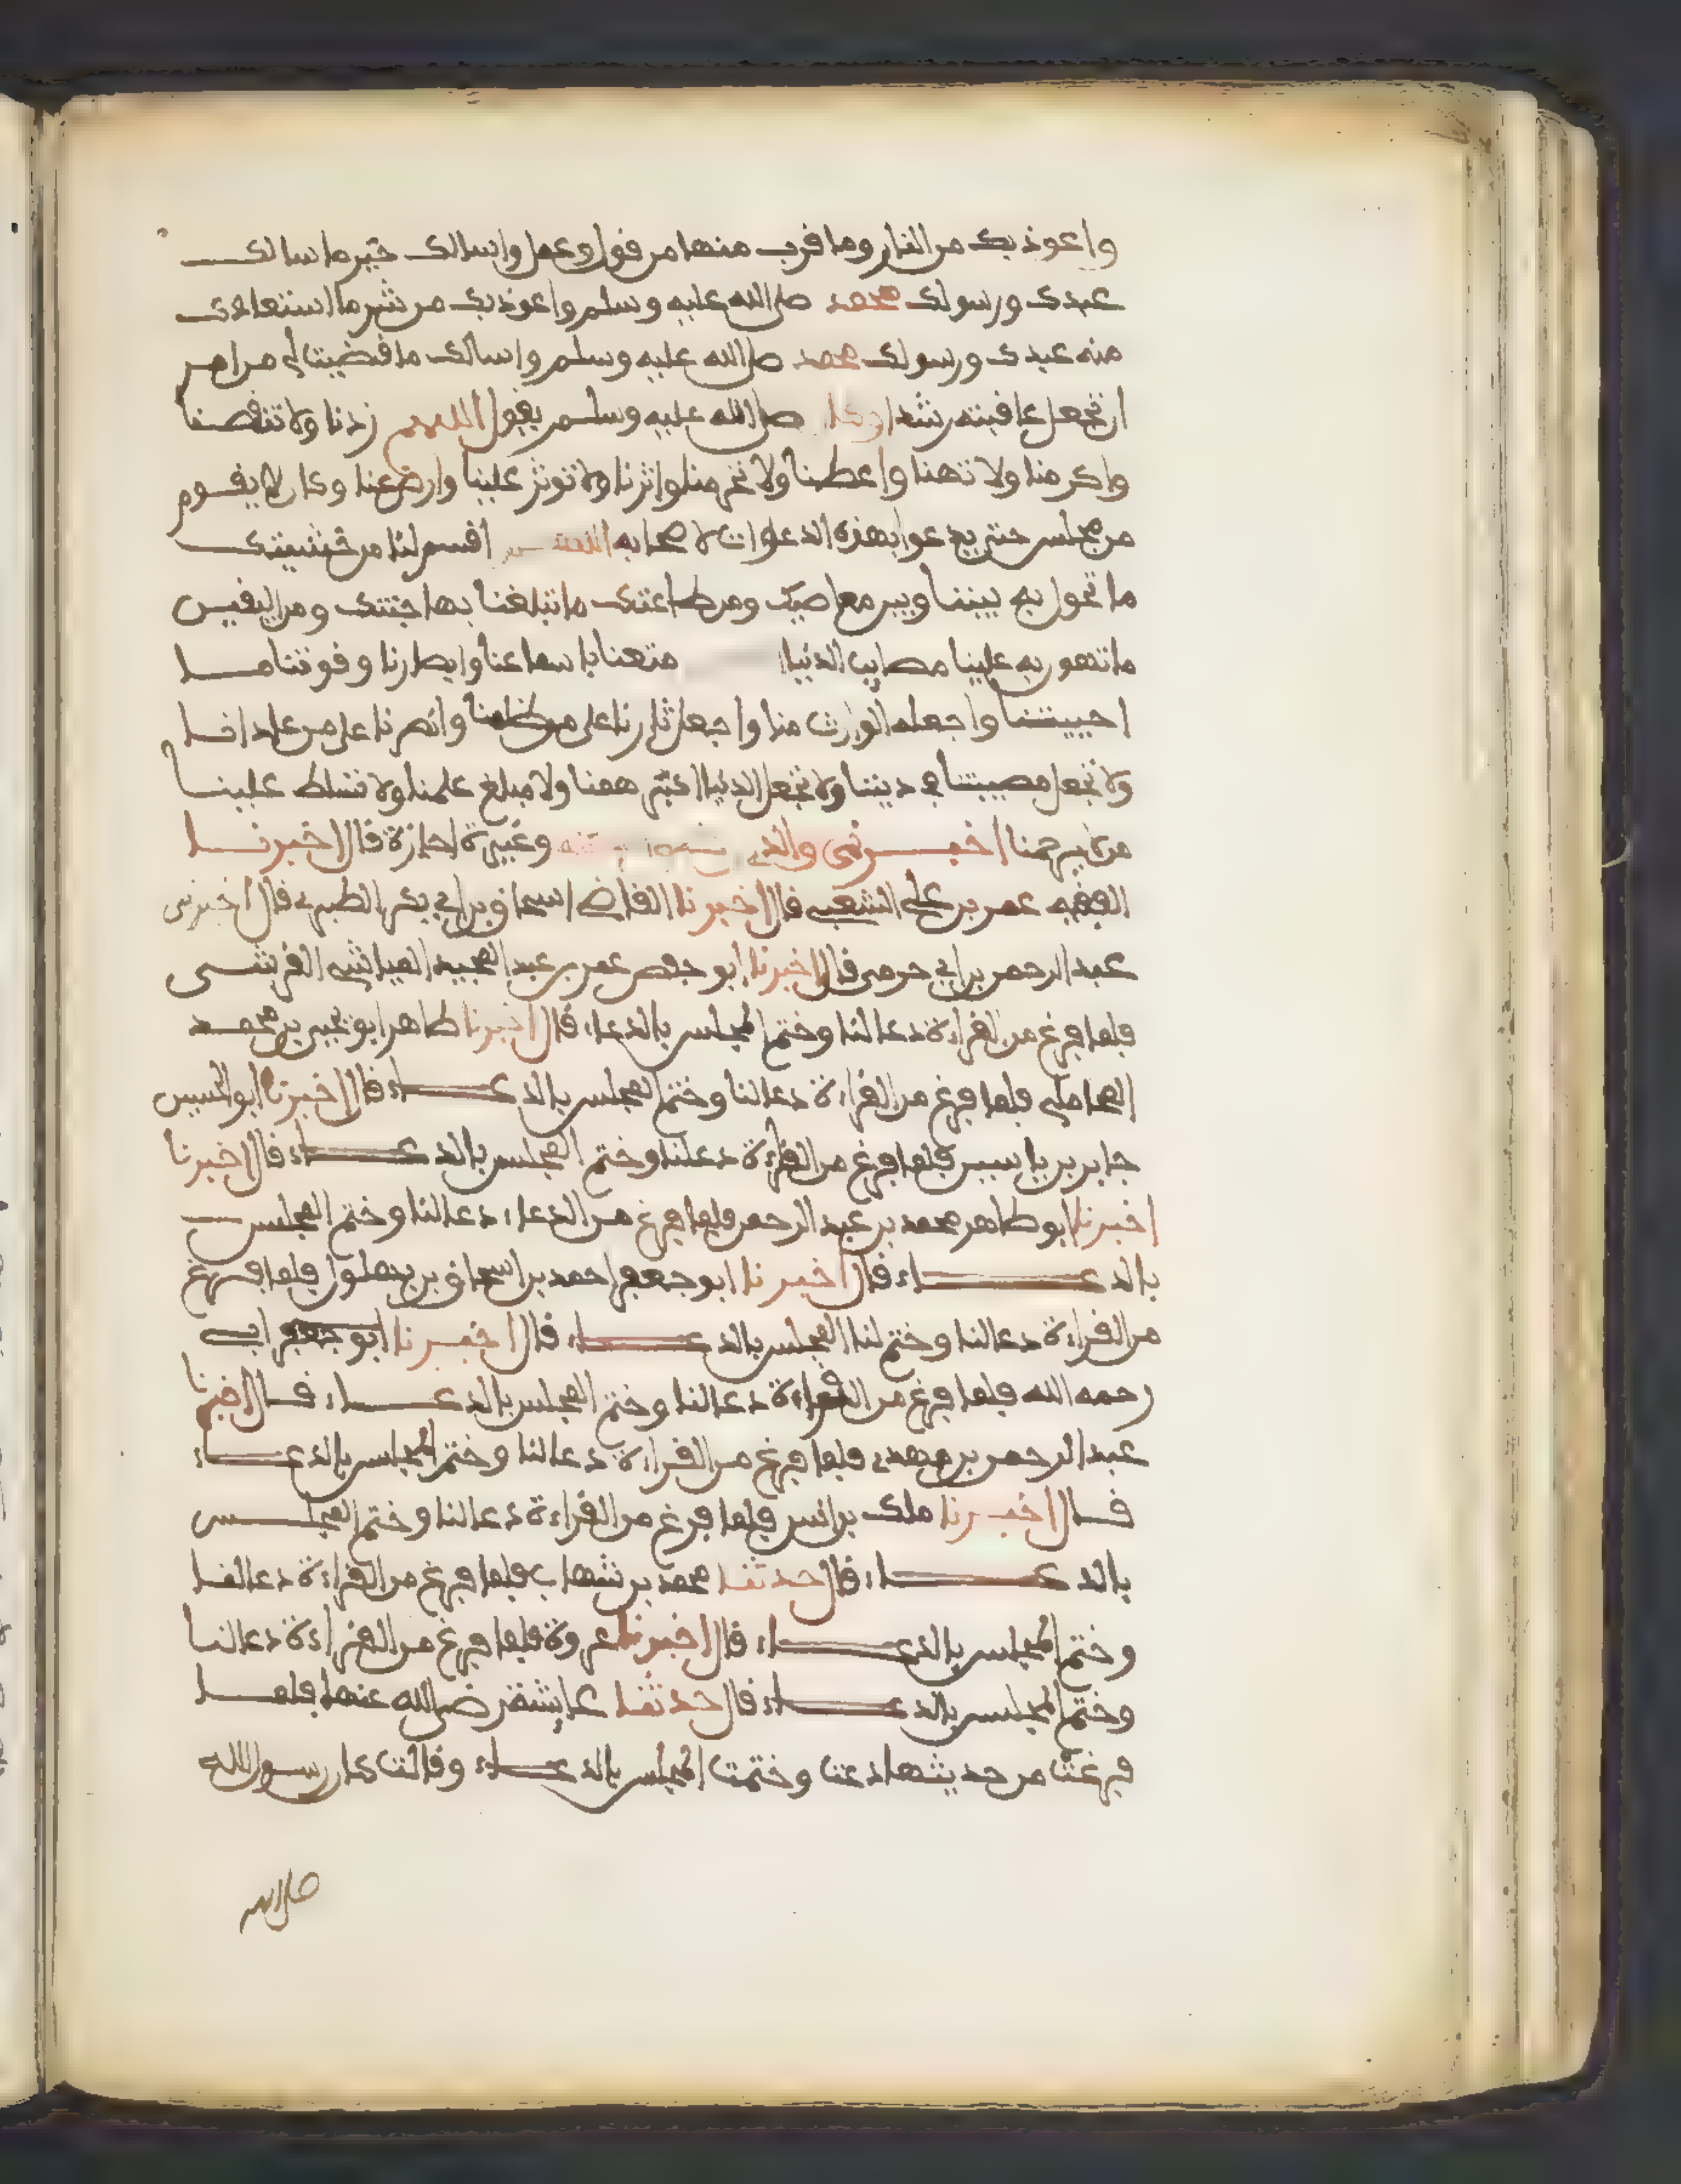 واعوذ بك من النار وما قرب منها من قول وعمل واسالك خير ما سالك
عبدك ورسولك محمد صلى الله عليه وسلم واعوذ بك من شر ما استعاذك
منه عبدك ورسولك محمد صلى الله عليه وسلم واسالك ما قضيت لي من امر
ان تجعل عاقبته رشدا وكان صلى الله عليه وسلم يقول اللهم زدنا ولا تنقصنا
واكرمنا ولا تهنا واعطنا ولا تحرمنا واثرنا ولا توثر علينا وارض عنا وكان لا يقوم
من مجلس حتى يدعوا بهذه الدعوات لاصحابه اللهم اقسم لنا من خشيتك
ما تحول به بيننا وبين معاصيك ومن طاعتك ما تبلغنا بها جنتك ومن اليقين
ما تهون به علينا مصايب الدنيا متعنا باسماعنا وابصارنا وقوتنا ما
احييتنا واجعله الوارث منا واجعل ثارنا على من ظلمنا وانصرنا على من عادانا
ولا تجعل مصيبتنا في ديننا ولا تجعل الدنيا اكبر همنا ولا مبلغ علمنا ولا تسلط علينا
من لا يرحمنا اخبرني والدي وغيره اجازة قال اخبرنا
الفقيه عمر بن علي الشعبي قال اخبرنا القاضي اسحاق بن ابي بكر الطبري قال اخبرني
عبد الرحمن بن ابي حرمي قال اخبرنا ابو حفص عمر بن عبد المجيد المياشي القرشي
فلما فرغ من القراءة دعا لنا وختم المجلس بالدعاء قال اخبرنا طاهر ابو يحيى بن محمد
المحاملي فلما فرغ من القراءة دعا لنا وختم المجلس بالدعاء قال اخبرنا ابو الحسين
جابر بن ياسين فلما فرغ من القراءة دعا لنا وختم المجلس بالدعاء قال اخبرنا
اخبرنا ابو طاهر محمد بن عبد الرحمن فلما فرغ من الدعاء دعا لنا وختم المجلس
بالدعاء قال اخبرنا ابو جعفر احمد بن اسحاق بن بهلول فلما فرغ
من القراءة دعا لنا وختم لنا المجلس بالدعاء قال اخبرنا ابو جعفر ابي
رحمه الله فلما فرغ من القراءة دعا لنا وختم المجلس بالدعاء قال اخبرنا
عبد الرحمن بن مهدي فلما فرغ من القراءة دعا لنا وختم المجلس بالدعاء
قال اخبرنا ملك بن انس فلما فرغ من القراءة دعا لنا وختم المجلس
بالدعاء قال حدثنا محمد بن شهاب فلما فرغ من القراءة دعا لنا
وختم المجلس بالدعاء قال اخبرنا عروة فلما فرغ من القراءة دعا لنا
وختم المجلس بالدعاء قال حدثنا عايشة رضي الله عنها فلما
فرغت من حديثها دعت وختمت المجلس بالدعاء وقالت كان رسول الله
صلى الله